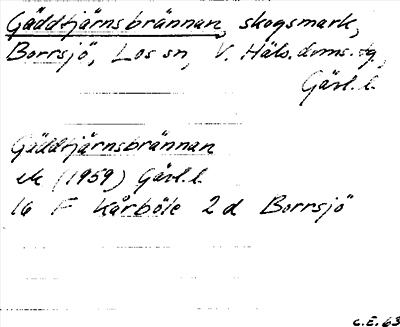 Gäddtjärnsbrännan, skogsmark,
Borrsjö, Los sn, V. Häls. doms.sg,
Gävl.l.
Gäddtjärnsbrännan
ek (1959) Gävl.l.
16 F Kårböle 2d Borrsjö
C.E. 63